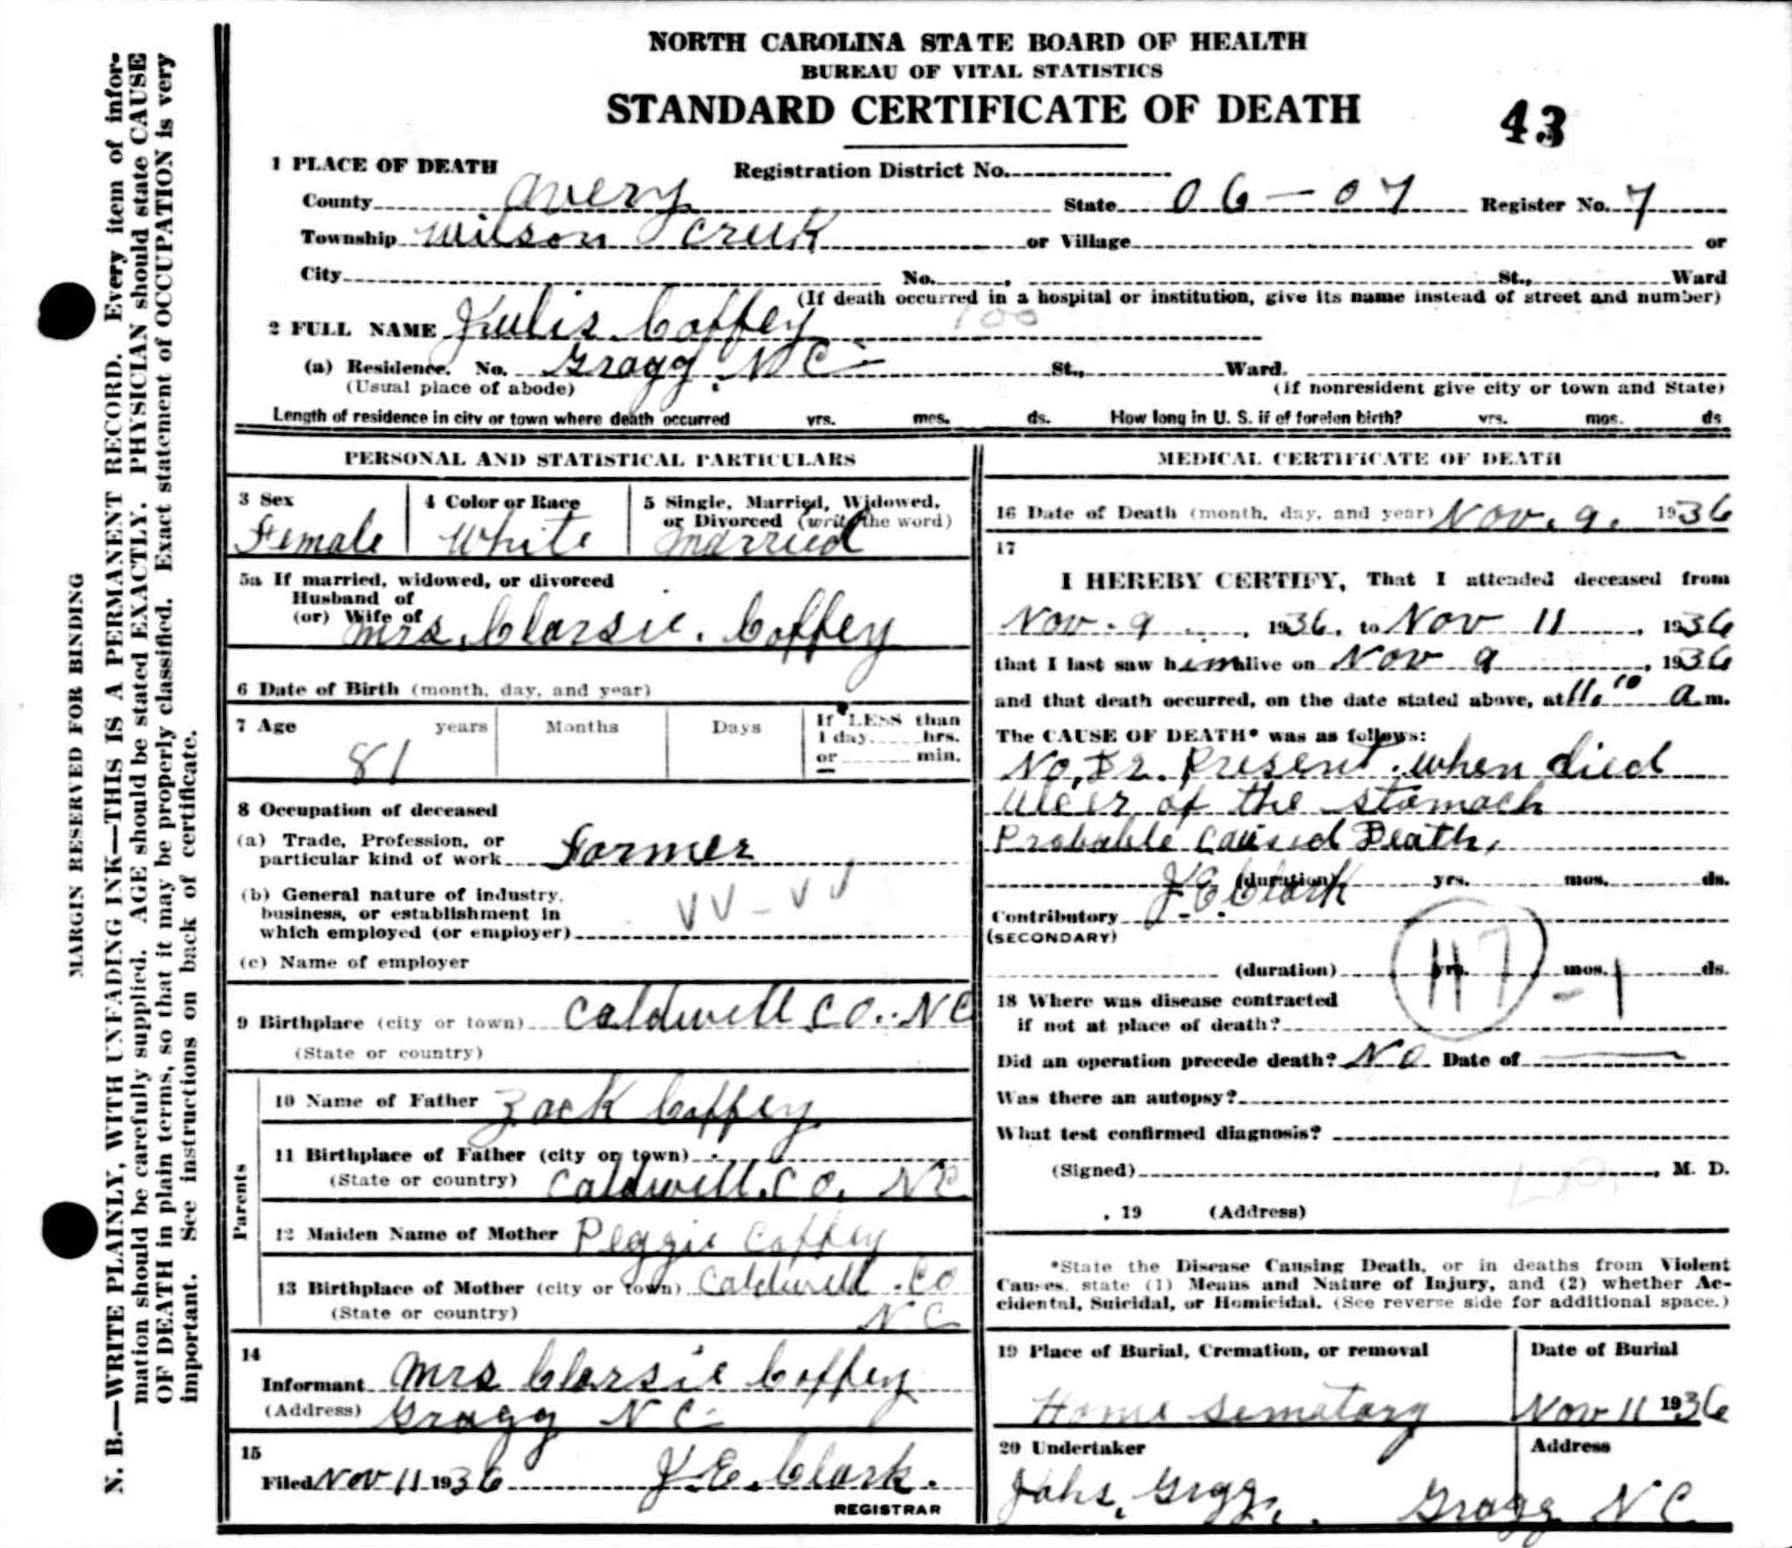 NORTH CAROLINA STATE BOARD OF HEALTH
BUREAU OF VITAL STATISTICS
STANDARD CERTIFICATE OF DEATH
43
1 PLACE OF DEATH
Registration District No.
County Avery State 06-07 Register No. 7
Township Wilson Creek or Village or
City No. , St., Ward
(If death occurred in a hospital or institution, give its name instead of street and number)
100
2 FULL NAME Julis Coffey
(a) Residence. No. Gragg, NC St., Ward.
(Usual place of abode) (if nonresident give city or town and State)
Length of residence in city or town where death occurred yrs. mos. ds. How long in U. S. if of foreign birth? yrs. mos. ds
PERSONAL AND STATISTICAL PARTICULARS
3 Sex 4 Color or Race 5 Single, Married, Widowed,
or Divorced (write the word)
Female White Married
5a If married, widowed, or divorced
Husband of
(or) Wife of Mrs. Clarsie. Coffey
6 Date of Birth (month, day, and year)
7 Age years Months Days If LESS than
1 day hrs.
or min.
81
8 Occupation of deceased
(a) Trade, Profession, or
particular kind of work Farmer
(b) General nature of industry,
business, or establishment in
which employed (or employer)
VV-VV
(c) Name of employer
9 Birthplace (city or town) Caldwell Co. NC
(State or country)
Parents
10 Name of Father Zack Coffey
11 Birthplace of Father (city or town)
(State or country) Caldwell. Co. NC
12 Maiden Name of Mother Peggie Coffey
13 Birthplace of Mother (city or town) Caldwell. Co
(State or country) NC
14
Informant Mrs Clarsie Coffey
(Address) Gragg NC
15
Filed Nov 11 1936 J.E. Clark.
REGISTRAR
MEDICAL CERTIFICATE OF DEATH
16 Date of Death (month, day, and year) Nov. 9. 1936
17
I HEREBY CERTIFY, That I attended deceased from
Nov. 9 , 1936, to Nov 11 , 1936
that I last saw him alive on Nov 9 , 1936
and that death occurred, on the date stated above, at 11.10 a.m.
The CAUSE OF DEATH* was as follows:
No, Dr. Present. when died
Ulcer of the stomach
Probable caused Death,
(duration) yrs. mos. ds.
J.E. Clark
Contributory
(SECONDARY)
(duration) yrs. mos. ds.
117 - 1
18 Where was disease contracted
if not at place of death?
Did an operation precede death? No. Date of
Was there an autopsy?
What test confirmed diagnosis?
(Signed) , M. D.
, 19 (Address)
*State the Disease Causing Death, or in deaths from Violent
Causes, state (1) Means and Nature of Injury, and (2) whether Ac-
cidental, Suicidal, or Homicidal. (See reverse side for additional space.)
19 Place of Burial, Cremation, or removal Date of Burial
Home Sematary Nov 11 1936
20 Undertaker Address
Gragg NC
MARGIN RESERVED FOR BINDING
N. B.—WRITE PLAINLY, WITH UNFADING INK—THIS IS A PERMANENT RECORD. Every item of infor-
mation should be carefully supplied. AGE should be stated EXACTLY. PHYSICIAN should state CAUSE
OF DEATH in plain terms, so that it may be properly classified. Exact statement of OCCUPATION is very
important. See instructions on back of certificate.